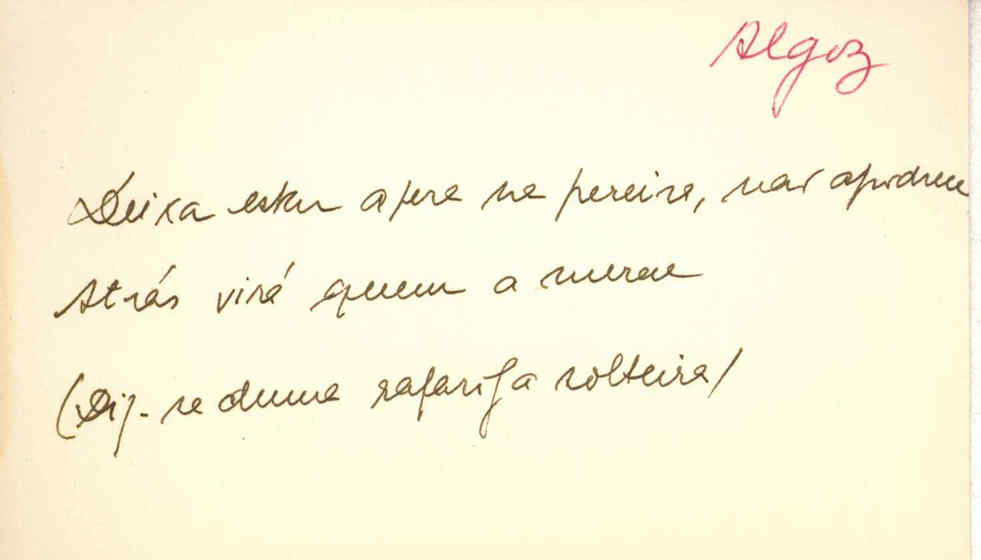 Algoz
Deixa estar a pera na pereira, não apodrece
Atrás virá quem a merece
(Diz-se duma rapariga solteira)